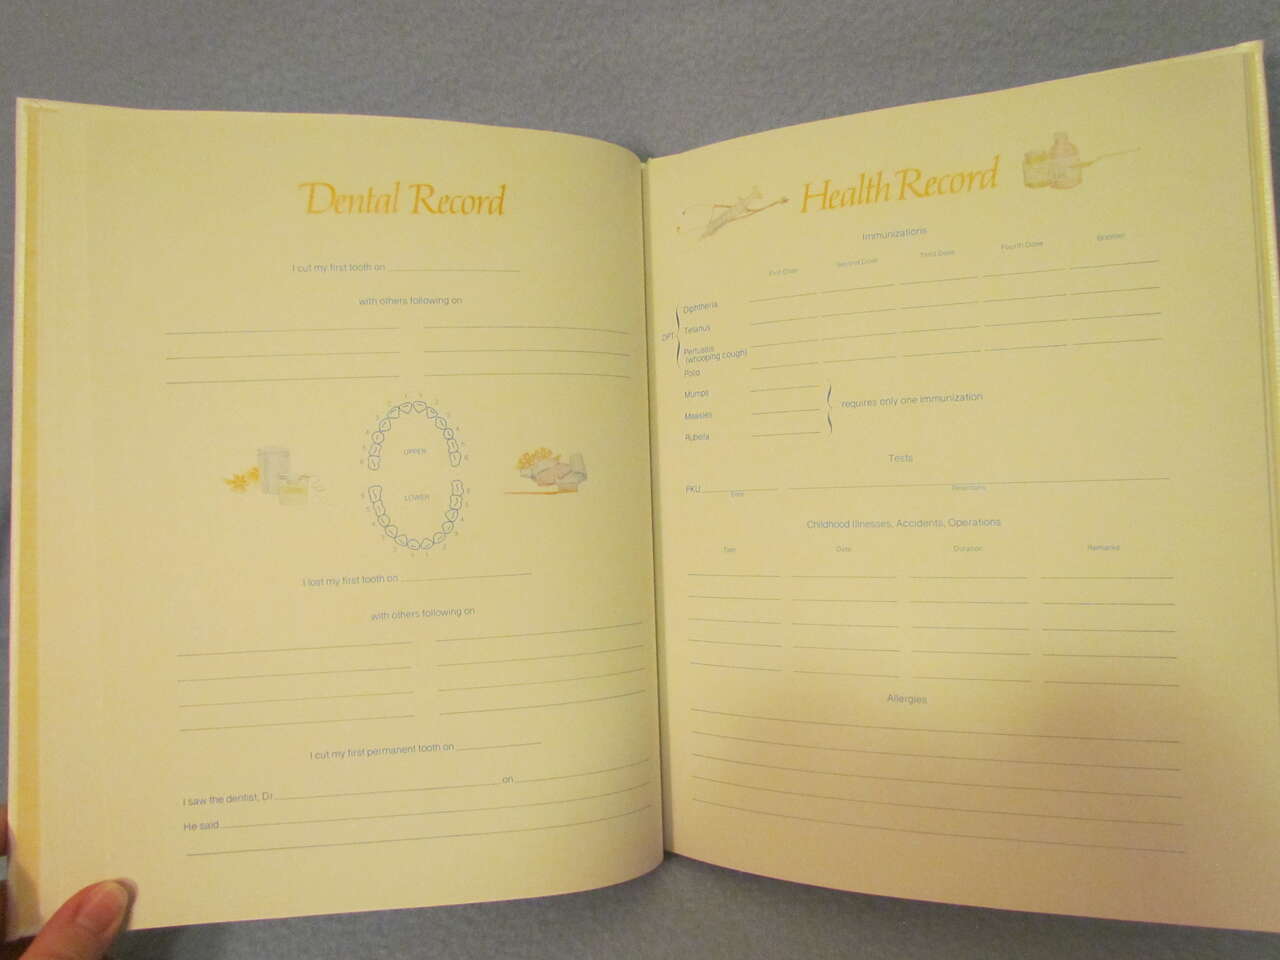 Dental Record
I cut my first tooth on
with others following on
UPPER
LOWER
I lost my first tooth on
with others following on
I cut my first permanent tooth on
I saw the dentist, Dr. on
He said
Health Record
Immunizations
First Dose Second Dose Third Dose Fourth Dose Booster
DPT
Diphtheria
Tetanus
Pertussis
(whooping cough)
Polio
Mumps
Measles
Rubella
requires only one immunization
Tests
PKU
Date
Childhood Illnesses, Accidents, Operations
Date Duration Remarks
Allergies